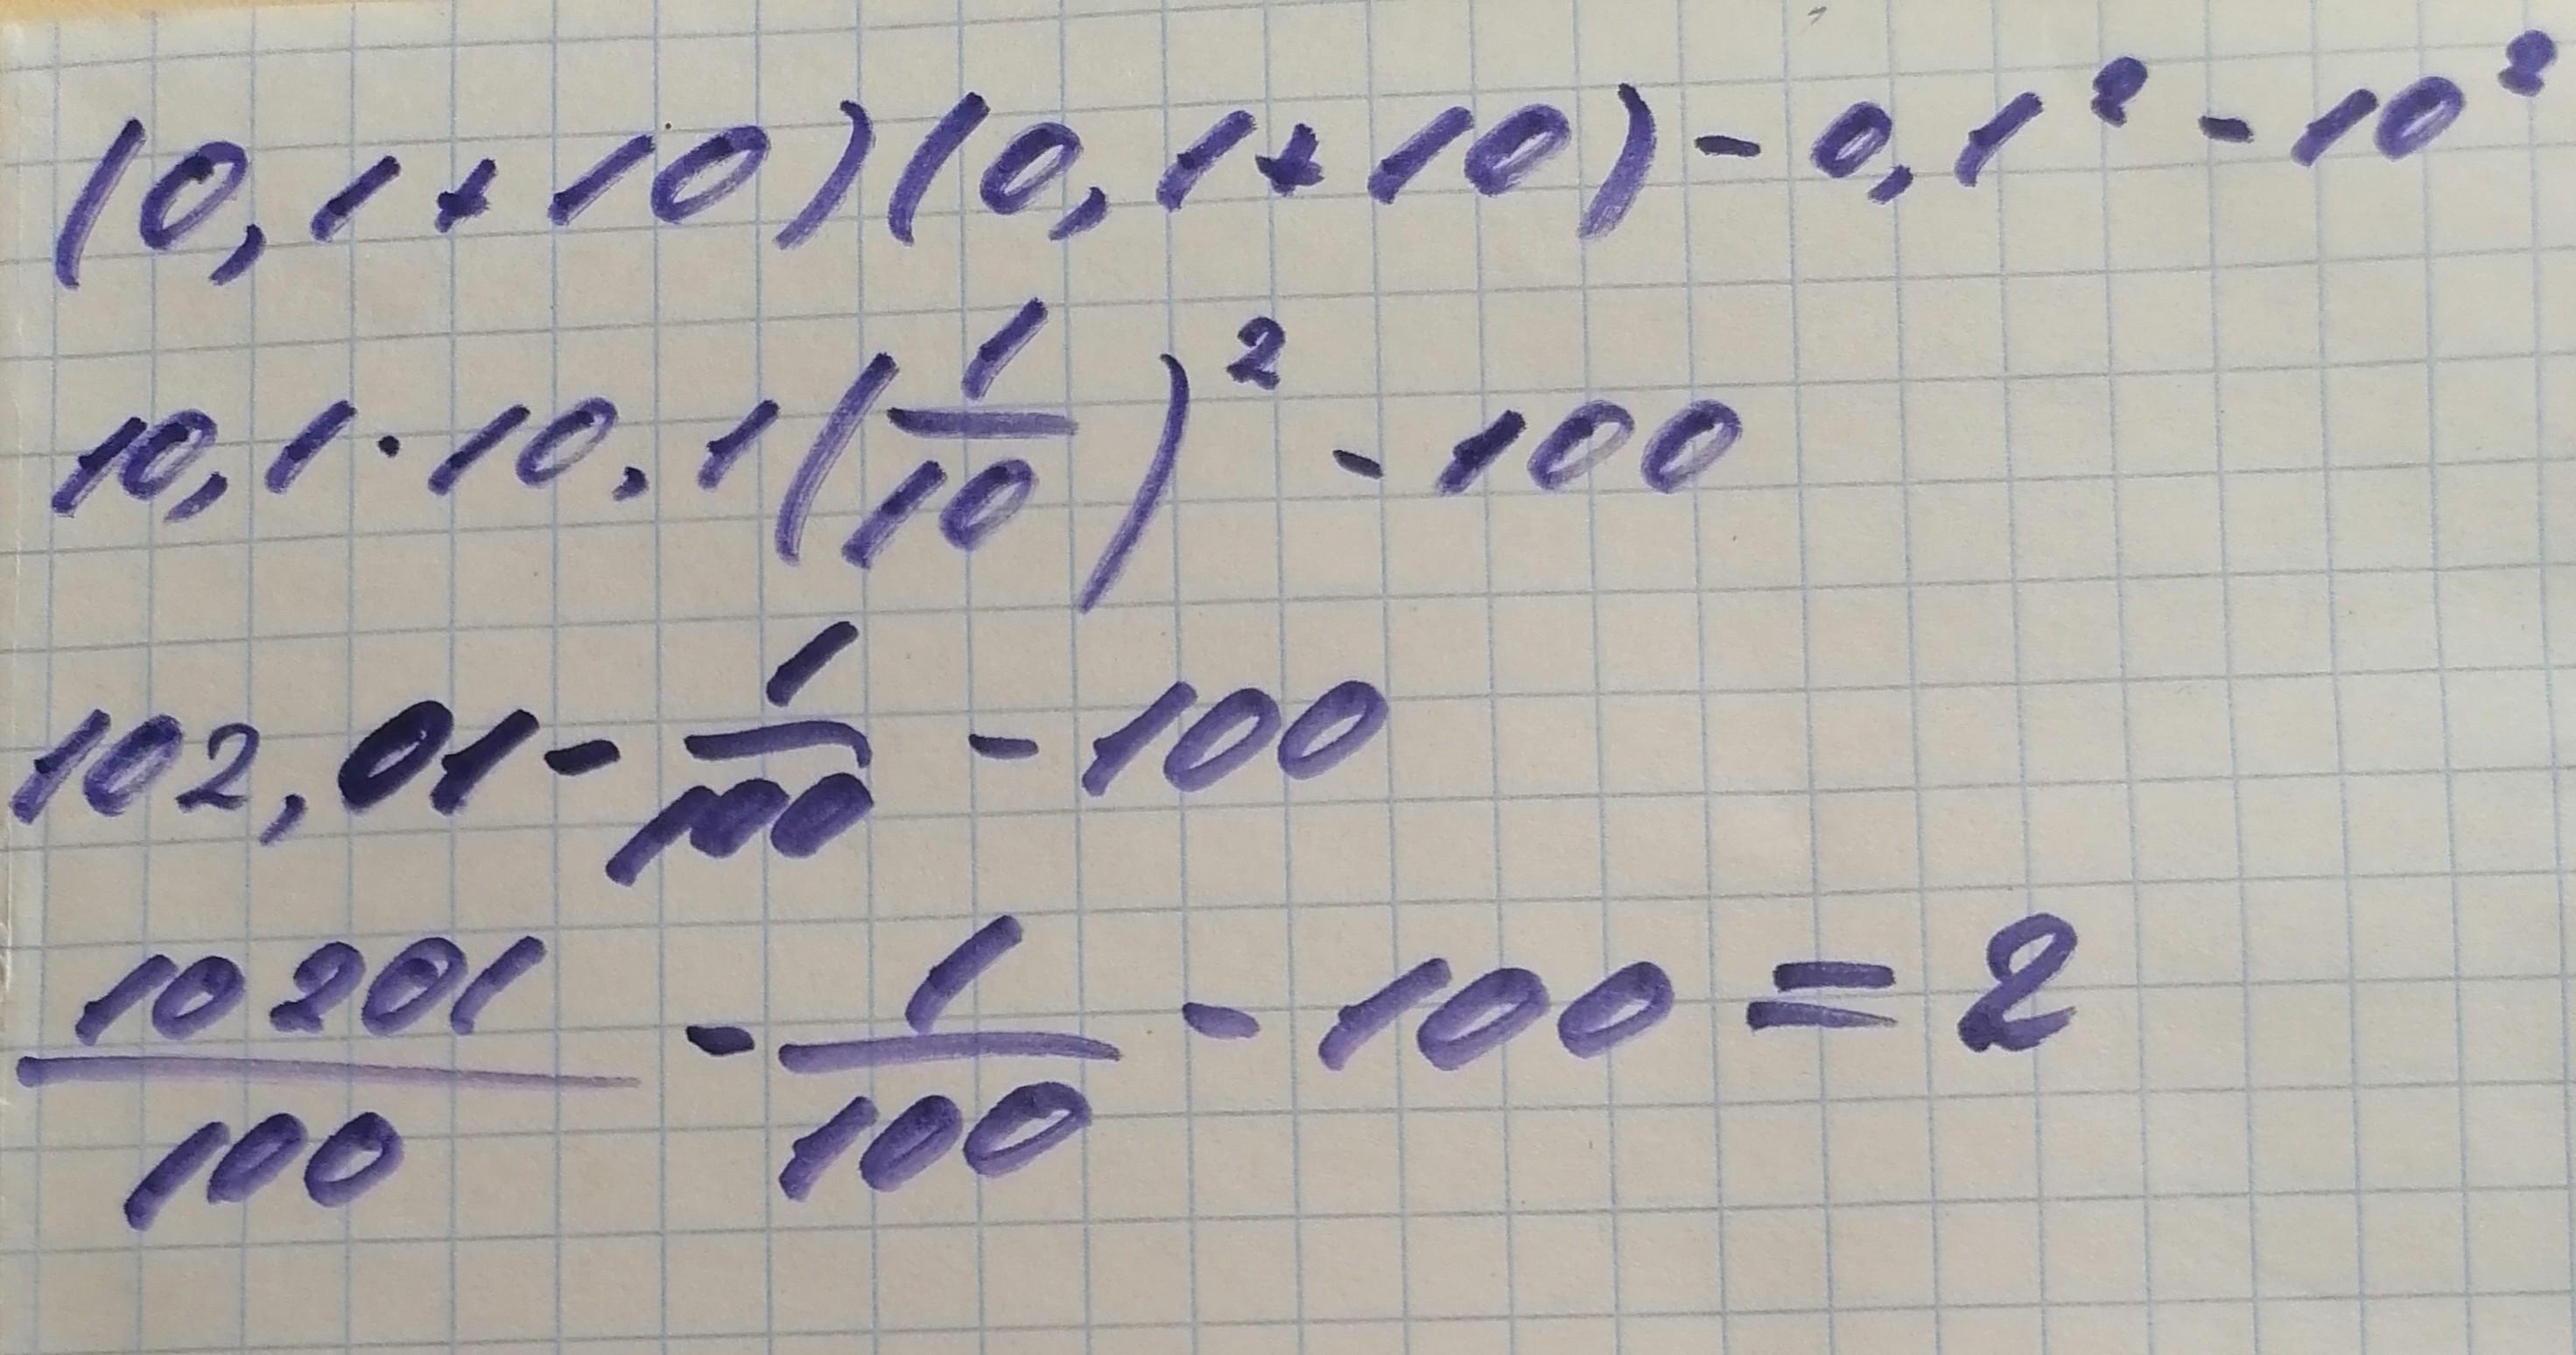 (0,1+10)(0,1+10)-0,1²-10²
10,1·10,1(1/10)²-100
102,01-1/100-100
10201/100-1/100-100=2